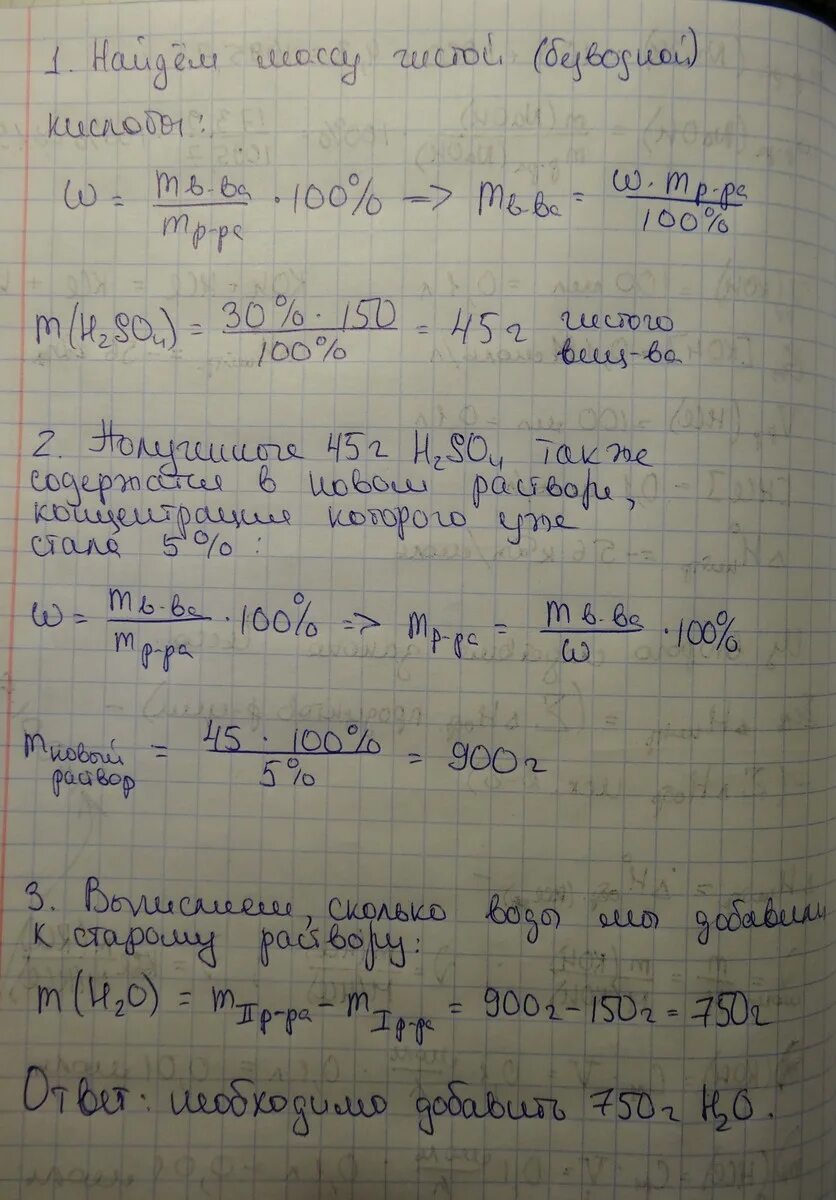 1. Найдём массу чистой (безводной)
кислоты:
ω = mв-ва / mр-ра · 100% => mв-ва = ω · mр-ра / 100%
m(H₂SO₄) = 30% · 150 / 100% = 45г чистого вещ-ва
2. Полученные 45г H₂SO₄ также
содержатся в новом растворе,
концентрация которого уже
стала 5%:
ω = mв-ва / mр-ра · 100% => mр-ра = mв-ва / ω · 100%
mновый раствор = 45 · 100% / 5% = 900г
3. Вычислием, сколько воды мы добавили
к старому раствору:
m(H₂O) = mIIр-ра − mIр-ра = 900г − 150г = 750г
Ответ: необходимо добавить 750г H₂O.